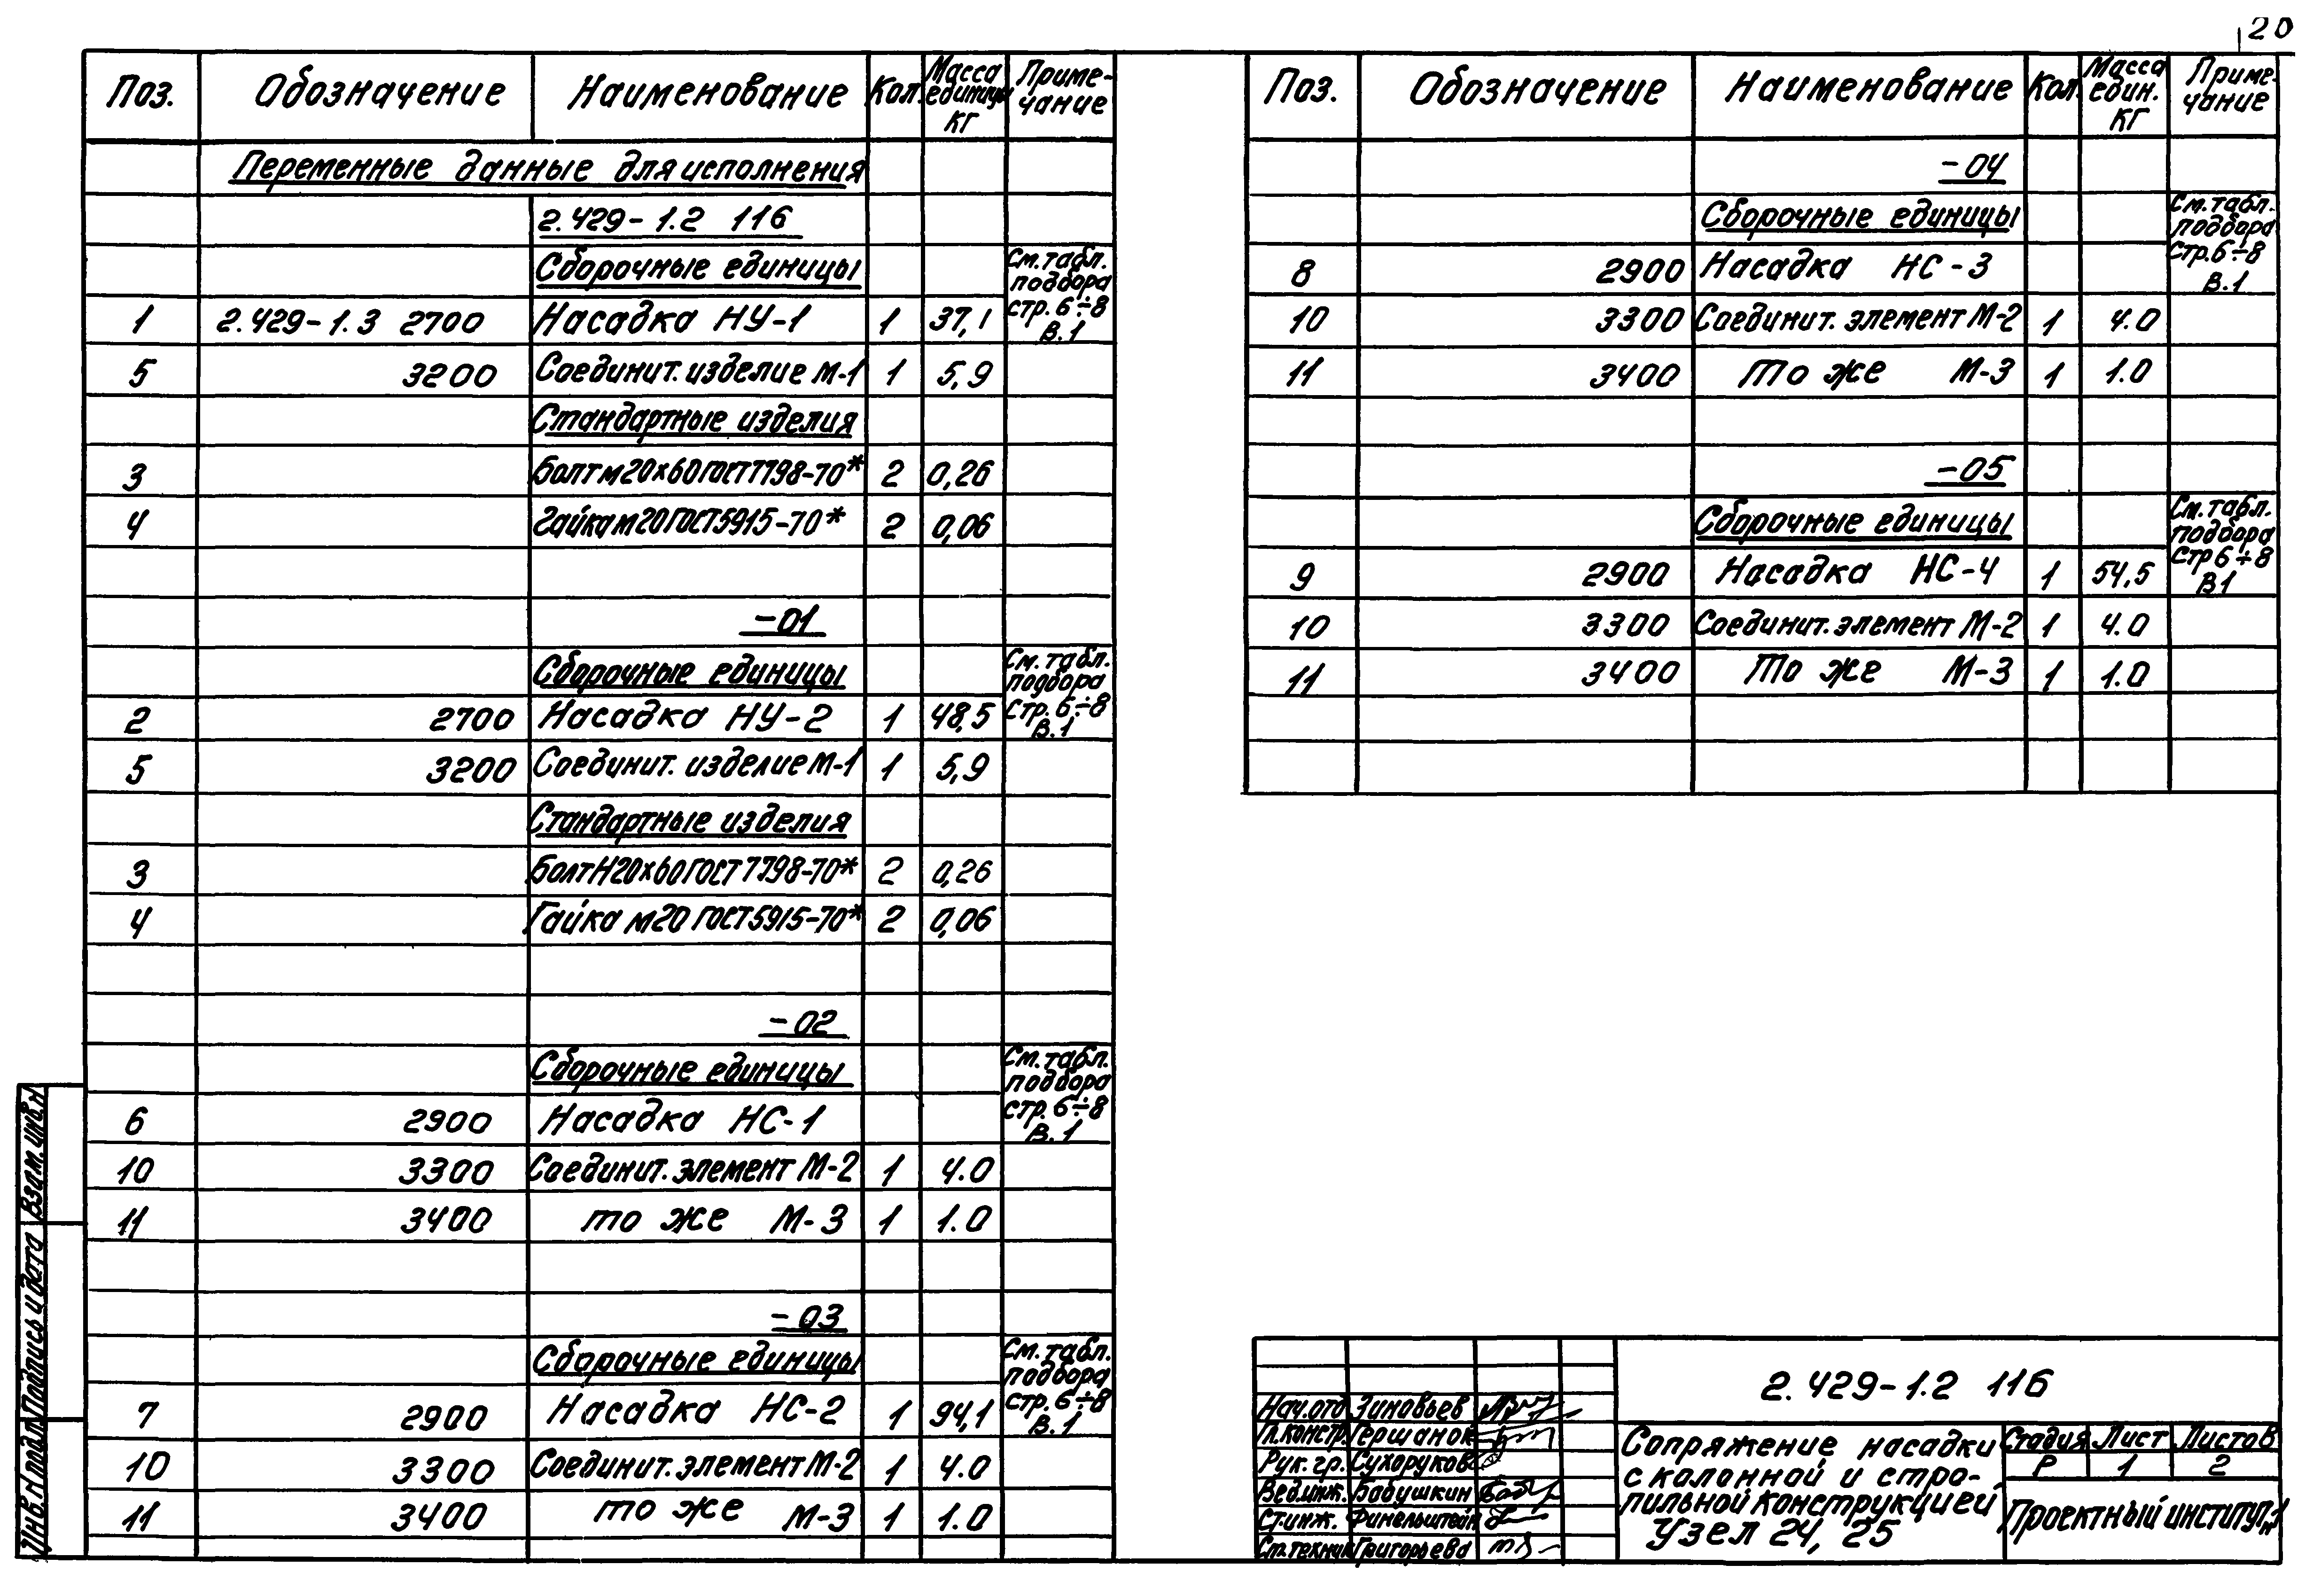 20
Поз. Обозначение Наименование Кол. Масса единицы кг Приме-чание
Переменные данные для исполнения
2.429-1.2 11б
Сборочные единицы См. табл. подбора стр. 6÷8 В.1
1 2.429-1.3 2700 Насадка НУ-1 1 37,1
5 3200 Соединит. изделие М-1 1 5,9
Стандартные изделия
3 Болт М20х60 ГОСТ 7798-70* 2 0,26
4 Гайка М20 ГОСТ 5915-70* 2 0,06
-01
Сборочные единицы См. табл. подбора стр. 6÷8 В.1
2 2700 Насадка НУ-2 1 48,5
5 3200 Соединит. изделие М-1 1 5,9
Стандартные изделия
3 Болт Н20х60 ГОСТ 7798-70* 2 0,26
4 Гайка М20 ГОСТ 5915-70* 2 0,06
-02
Сборочные единицы См. табл. подбора стр. 6÷8 В.1
6 2900 Насадка НС-1
10 3300 Соединит. элемент М-2 1 4.0
11 3400 То же М-3 1 1.0
-03
Сборочные единицы См. табл. подбора стр. 6÷8 В.1
7 2900 Насадка НС-2 1 94,1
10 3300 Соединит. элемент М-2 1 4.0
11 3400 То же М-3 1 1.0
Поз. Обозначение Наименование Кол. Масса един. кг Приме-чание
-04
Сборочные единицы См. табл. подбора стр. 6÷8 В.1
8 2900 Насадка НС-3
10 3300 Соединит. элемент М-2 1 4.0
11 3400 То же М-3 1 1.0
-05
Сборочные единицы См. табл. подбора стр 6÷8 В 1
9 2900 Насадка НС-4 1 54,5
10 3300 Соединит. элемент М-2 1 4.0
11 3400 То же М-3 1 1.0
Инв. N подл. Подпись и дата Взам. инв. N
Нач.отд Зиновьев
Гл.констр. Гершанок
Рук. гр. Сухоруков
Вед.инж. Бабушкин
Ст.инж. Финельштейн
Ст.техник Григорьева
2.429-1.2 11б
Сопряжение насадки
с колонной и стро-
пильной конструкцией
Узел 24, 25
Стадия Лист Листов
Р 1 2
Проектный институт N1